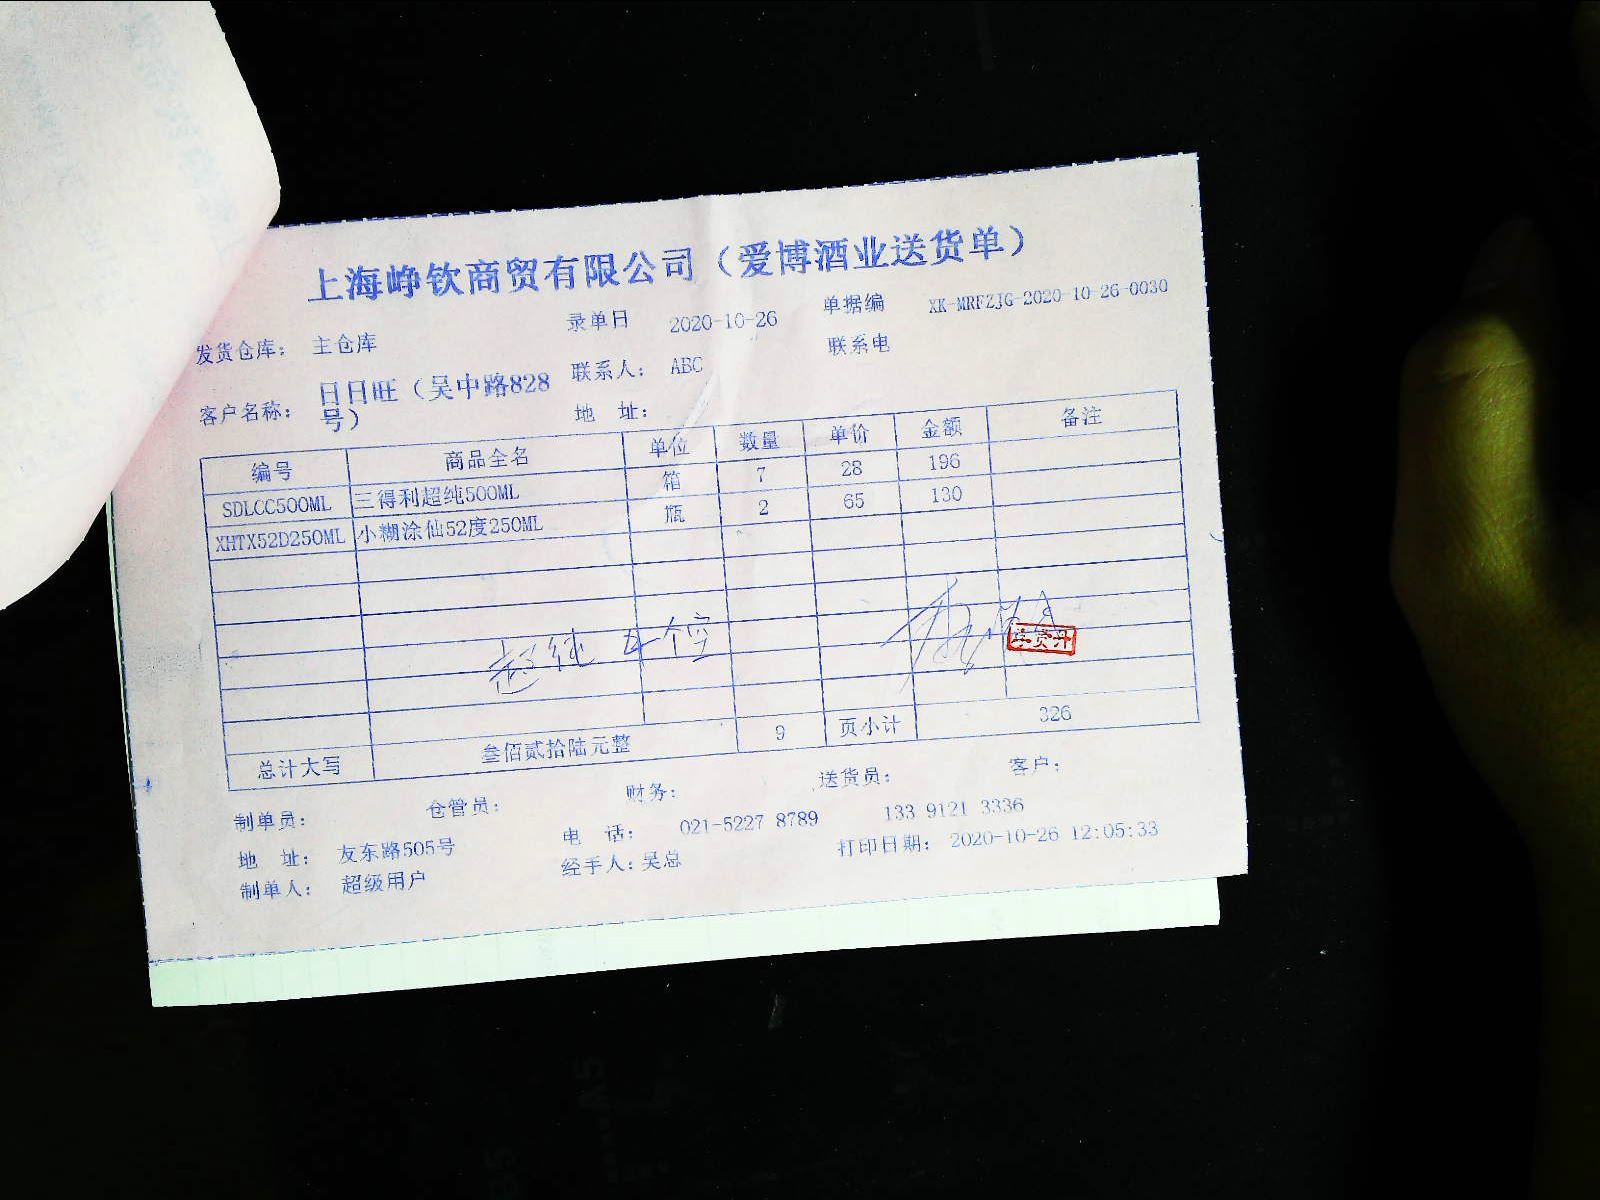 上海峥钦商贸有限公司（爱博酒业送货单）
发货仓库： 主仓库 录单日 2020-10-26 单据编 XK-MRFZJG-2020-10-26-0030
客户名称： 日日旺（吴中路828号） 联系人： ABC 联系电
地 址：
编号 商品全名 单位 数量 单价 金额 备注
SDLCC500ML 三得利超纯500ML 箱 7 28 196
XHTX52D250ML 小糊涂仙52度250ML 瓶 2 65 130
超纯 个空
总计大写 叁佰贰拾陆元整 9 页小计 326
制单员： 仓管员： 财务： 送货员： 客户：
地 址： 友东路505号 电 话： 021-5227 8789 133 9121 3336
制单人： 超级用户 经手人：吴总 打印日期： 2020-10-26 12:05:33